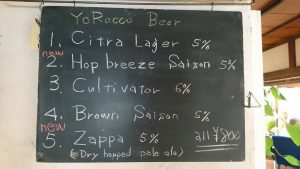 YoRocco Beer
1. Citra Lager 5%
new
2. Hop breeze Saison 5%
3. Cultivator 6%
4. Brown Saison 5%
new
5. Zappa 5%
(Dry hopped pale ale)
all ¥800